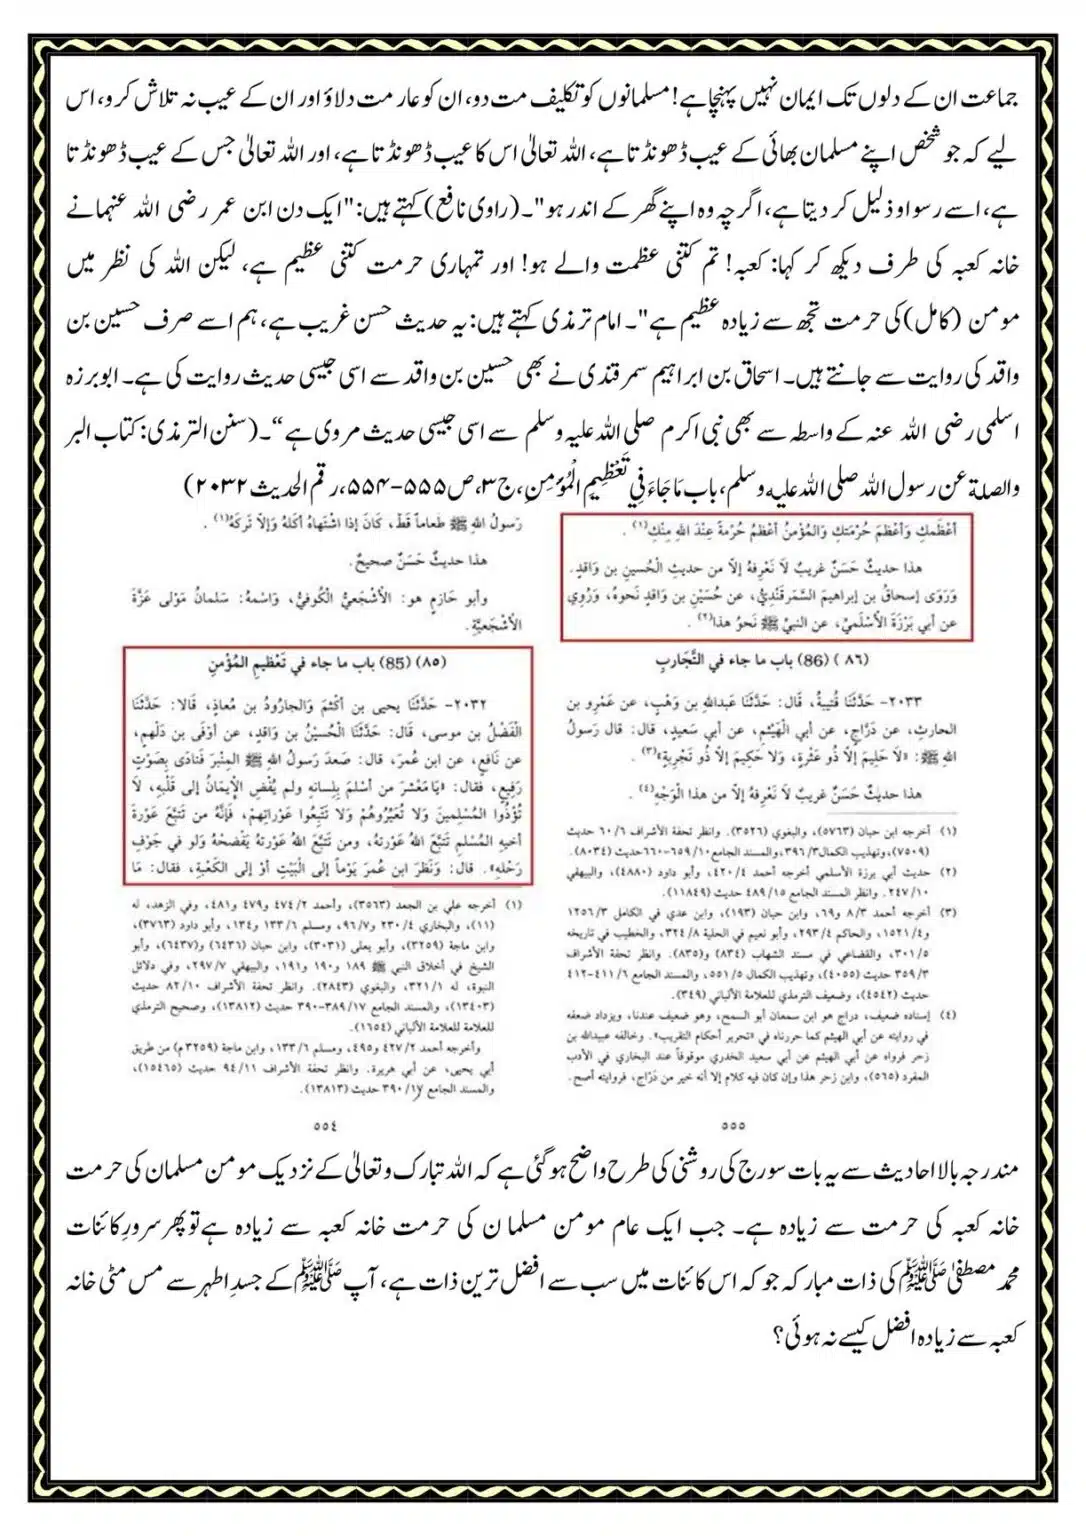 جماعت ان کے دلوں تک ایمان نہیں پہنچا ہے! مسلمانوں کو تکلیف مت دو، ان کو عار مت دلاؤ اور ان کے عیب نہ تلاش کرو، اس
لیے کہ جو شخص اپنے مسلمان بھائی کے عیب ڈھونڈتا ہے، اللہ تعالیٰ اس کا عیب ڈھونڈتا ہے، اور اللہ تعالیٰ جس کے عیب ڈھونڈتا
ہے، اسے رسوا و ذلیل کر دیتا ہے، اگرچہ وہ اپنے گھر کے اندر ہو"۔ (راوی نافع) کہتے ہیں: "ایک دن ابن عمر رضی اللہ عنہما نے
خانہ کعبہ کی طرف دیکھ کر کہا: کعبہ! تم کتنی عظمت والے ہو! اور تمہاری حرمت کتنی عظیم ہے، لیکن اللہ کی نظر میں
مومن (کامل) کی حرمت تجھ سے زیادہ عظیم ہے"۔ امام ترمذی کہتے ہیں: یہ حدیث حسن غریب ہے، ہم اسے صرف حسین بن
واقد کی روایت سے جانتے ہیں۔ اسحاق بن ابراہیم سمرقندی نے بھی حسین بن واقد سے اسی جیسی حدیث روایت کی ہے۔ ابوبرزہ
اسلمی رضی اللہ عنہ کے واسطہ سے بھی نبی اکرم صلی اللہ علیہ وسلم سے اسی جیسی حدیث مروی ہے“۔ (سنن الترمذی: کتاب البر
والصلة عن رسول اللہ صلی اللہ علیہ وسلم، باب مَا جَاءَ فِي تَعْظِيمِ الْمُؤْمِنِ، ج ۳، ص ۵۵۵-۵۵۴، رقم الحدیث ۲۰۳۲)
رَسولُ اللهِ ﷺ طَعاماً قَطُّ، كَانَ إذا اشْتَهاهُ أكَلَهُ وَإلاّ تَرَكَهُ(١) .
هذا حديثٌ حَسَنٌ صحيحٌ.
وأبو حَازمٍ هو: الأشْجَعيُّ الْكُوفيُّ، وَاسْمُهُ: سَلمانُ مَوْلى عَزَّةَ
الأشْجَعيَّةِ.
(٨٥) (85) باب ما جاء في تَعْظيمِ المُؤْمنِ
٢٠٣٢- حَدَّثَنَا يحيى بن أكْثمَ وَالجارُودُ بن مُعاذٍ، قَالا: حَدَّثَنَا
الْفَضْلُ بن موسى، قَال: حَدَّثَنَا الْحُسَيْنُ بن وَاقدٍ، عن أوْفَى بن دَلْهمٍ،
عن نَافعٍ، عن ابن عُمرَ، قال: صَعدَ رَسولُ اللهِ ﷺ المِنْبَرَ فَنادَى بِصَوْتٍ
رَفيعٍ، فقال: «يَا مَعْشَرَ من أسْلمَ بِلسانهِ ولم يُفْضِ الإيمَانُ إلى قَلْبهِ، لَا
تُؤْذُوا المُسْلمينَ وَلا تُعَيِّرُوهُمْ وَلا تَتَّبِعُوا عَوْرَاتِهمْ، فَإنَّهُ من تَتَبَّعَ عَوْرةَ
أخيهِ المُسْلمِ تَتَبَّعَ اللهُ عَوْرَتهُ، ومن تَتَبَّعَ اللهُ عَوْرتهُ يَفْضحْهُ وَلو في جَوْفِ
رَحْلهِ». قال: وَنَظَرَ ابن عُمرَ يَوْماً إلى الْبَيْتِ أوْ إلى الكَعْبةِ، فقال: مَا
(١) أخرجه علي بن الجعد (٣٥٦٣)، وأحمد ٤٧٤/٢ و٤٧٩ و٤٨١، وفي الزهد، له
(١١)، والبخاري ٢٣٠/٤ و٩٦/٧، ومسلم ١٣٣/٦ و١٣٤، وأبو داود (٣٧٦٣)،
وابن ماجة (٣٢٥٩)، وأبو يعلى، وابن حبان (٦٤٣٦) و(٦٤٣٧)، وأبو
الشيخ في أخلاق النبي ﷺ ١٨٩ و١٩٠ و١٩١، والبيهقي ٢٩٧/٧، وفي دلائل
النبوة، له ٣٢١/١، والبغوي (٢٨٤٣). وانظر تحفة الأشراف ٨٢/١٠ حديث
(١٣٤٠٣)، والمسند الجامع ٣٨٩/١٧-٣٩٠ حديث (١٣٨١٢)، وصحيح الترمذي
للعلامة الألباني (١٦٥٤).
وأخرجه أحمد ٤٢٧/٢ و٤٩٥، ومسلم ١٣٣/٦، وابن ماجة (٣٢٥٩م) من طريق
أبي يحيى، عن أبي هريرة. وانظر تحفة الأشراف ٩٤/١١ حديث (١٥٤٦٥)،
والمسند الجامع ٣٩٠/١٧ حديث (١٣٨١٣).
٥٥٤
أعْظَمكِ وَأعْظَمَ حُرْمَتكِ وَالمُؤْمنُ أعْظمُ حُرْمةً عِنْدَ اللهِ مِنْكِ(١) .
هذا حديثٌ حَسَنٌ غريبٌ لَا نَعْرِفهُ إلاّ من حديثِ الْحُسينِ بن وَاقدٍ.
وَرَوَى إسحاقُ بن إبراهيمَ السَّمرقَنْديُّ، عن حُسَيْنِ بن وَاقدٍ نَحوهُ، وَرُوِي
عن أبي بَرْزَةَ الأسْلَميِّ، عن النبيِّ ﷺ نَحوُ هذا(٢) .
(٨٦) (86) باب ما جاء في التَّجَاربِ
٢٠٣٣- حَدَّثَنَا قُتيبةُ، قَال: حَدَّثَنَا عَبداللهِ بن وَهْبٍ، عن عَمْرِو بن
الحارثِ، عن دَرَّاجٍ، عن أبي الْهَيْثمِ، عن أبي سَعيدٍ، قال: قال رَسولُ
اللهِ ﷺ: «لَا حَليمَ إلاّ ذُو عَثْرةٍ، وَلا حَكيمَ إلاّ ذُو تَجْرِبةٍ»(٣) .
هذا حديثٌ حَسَنٌ غريبٌ لَا نَعْرِفهُ إلاّ من هذا الْوَجْهِ(٤) .
(١) أخرجه ابن حبان (٥٧٦٣)، والبغوي (٣٥٢٦). وانظر تحفة الأشراف ٦٠/٦ حديث
(٧٥٠٩)، وتهذيب الكمال ٣٩٦/٣، والمسند الجامع ٦٥٩/١٠-٦٦٠ حديث (٨٠٣٤).
(٢) حديث أبي برزة الأسلمي أخرجه أحمد ٤٢٠/٤، وأبو داود (٤٨٨٠)، والبيهقي
٢٤٧/١٠. وانظر المسند الجامع ٤٨٩/١٥ حديث (١١٨٤٩).
(٣) أخرجه أحمد ٨/٣ و٦٩، وابن حبان (١٩٣)، وابن عدي في الكامل ١٢٥٦/٣
و١٥٢١/٤، والحاكم ٢٩٣/٤، وأبو نعيم في الحلية ٣٢٤/٨، والخطيب في تاريخه
٣٠١/٥، والقضاعي في مسند الشهاب (٨٣٤) و(٨٣٥). وانظر تحفة الأشراف
٣٥٩/٣ حديث (٤٠٥٥)، وتهذيب الكمال ٥٥١/٥، والمسند الجامع ٤١١/٦-٤١٢
حديث (٤٥٤٢)، وضعيف الترمذي للعلامة الألباني (٣٤٩).
(٤) إسناده ضعيف، دراج هو ابن سمعان أبو السمح، وهو ضعيف عندنا، ويزداد ضعفه
في روايته عن أبي الهيثم كما حررناه في «تحرير أحكام التقريب». وخالفه عبيدالله بن
زحر فرواه عن أبي الهيثم عن أبي سعيد الخدري موقوفاً عند البخاري في الأدب
المفرد (٥٦٥)، وابن زحر هذا وإن كان فيه كلام إلا أنه خير من دَرّاج، فروايته أصح.
٥٥٥
مندرجہ بالا احادیث سے یہ بات سورج کی روشنی کی طرح واضح ہو گئی ہے کہ اللہ تبارک وتعالیٰ کے نزدیک مومن مسلمان کی حرمت
خانہ کعبہ کی حرمت سے زیادہ ہے۔ جب ایک عام مومن مسلمان کی حرمت خانہ کعبہ سے زیادہ ہے تو پھر سرورِ کائنات
محمد مصطفیٰ ﷺ کی ذات مبارکہ جو کہ اس کائنات میں سب سے افضل ترین ذات ہے، آپ ﷺ کے جسدِ اطہر سے مس مٹی خانہ
کعبہ سے زیادہ افضل کیسے نہ ہوئی؟